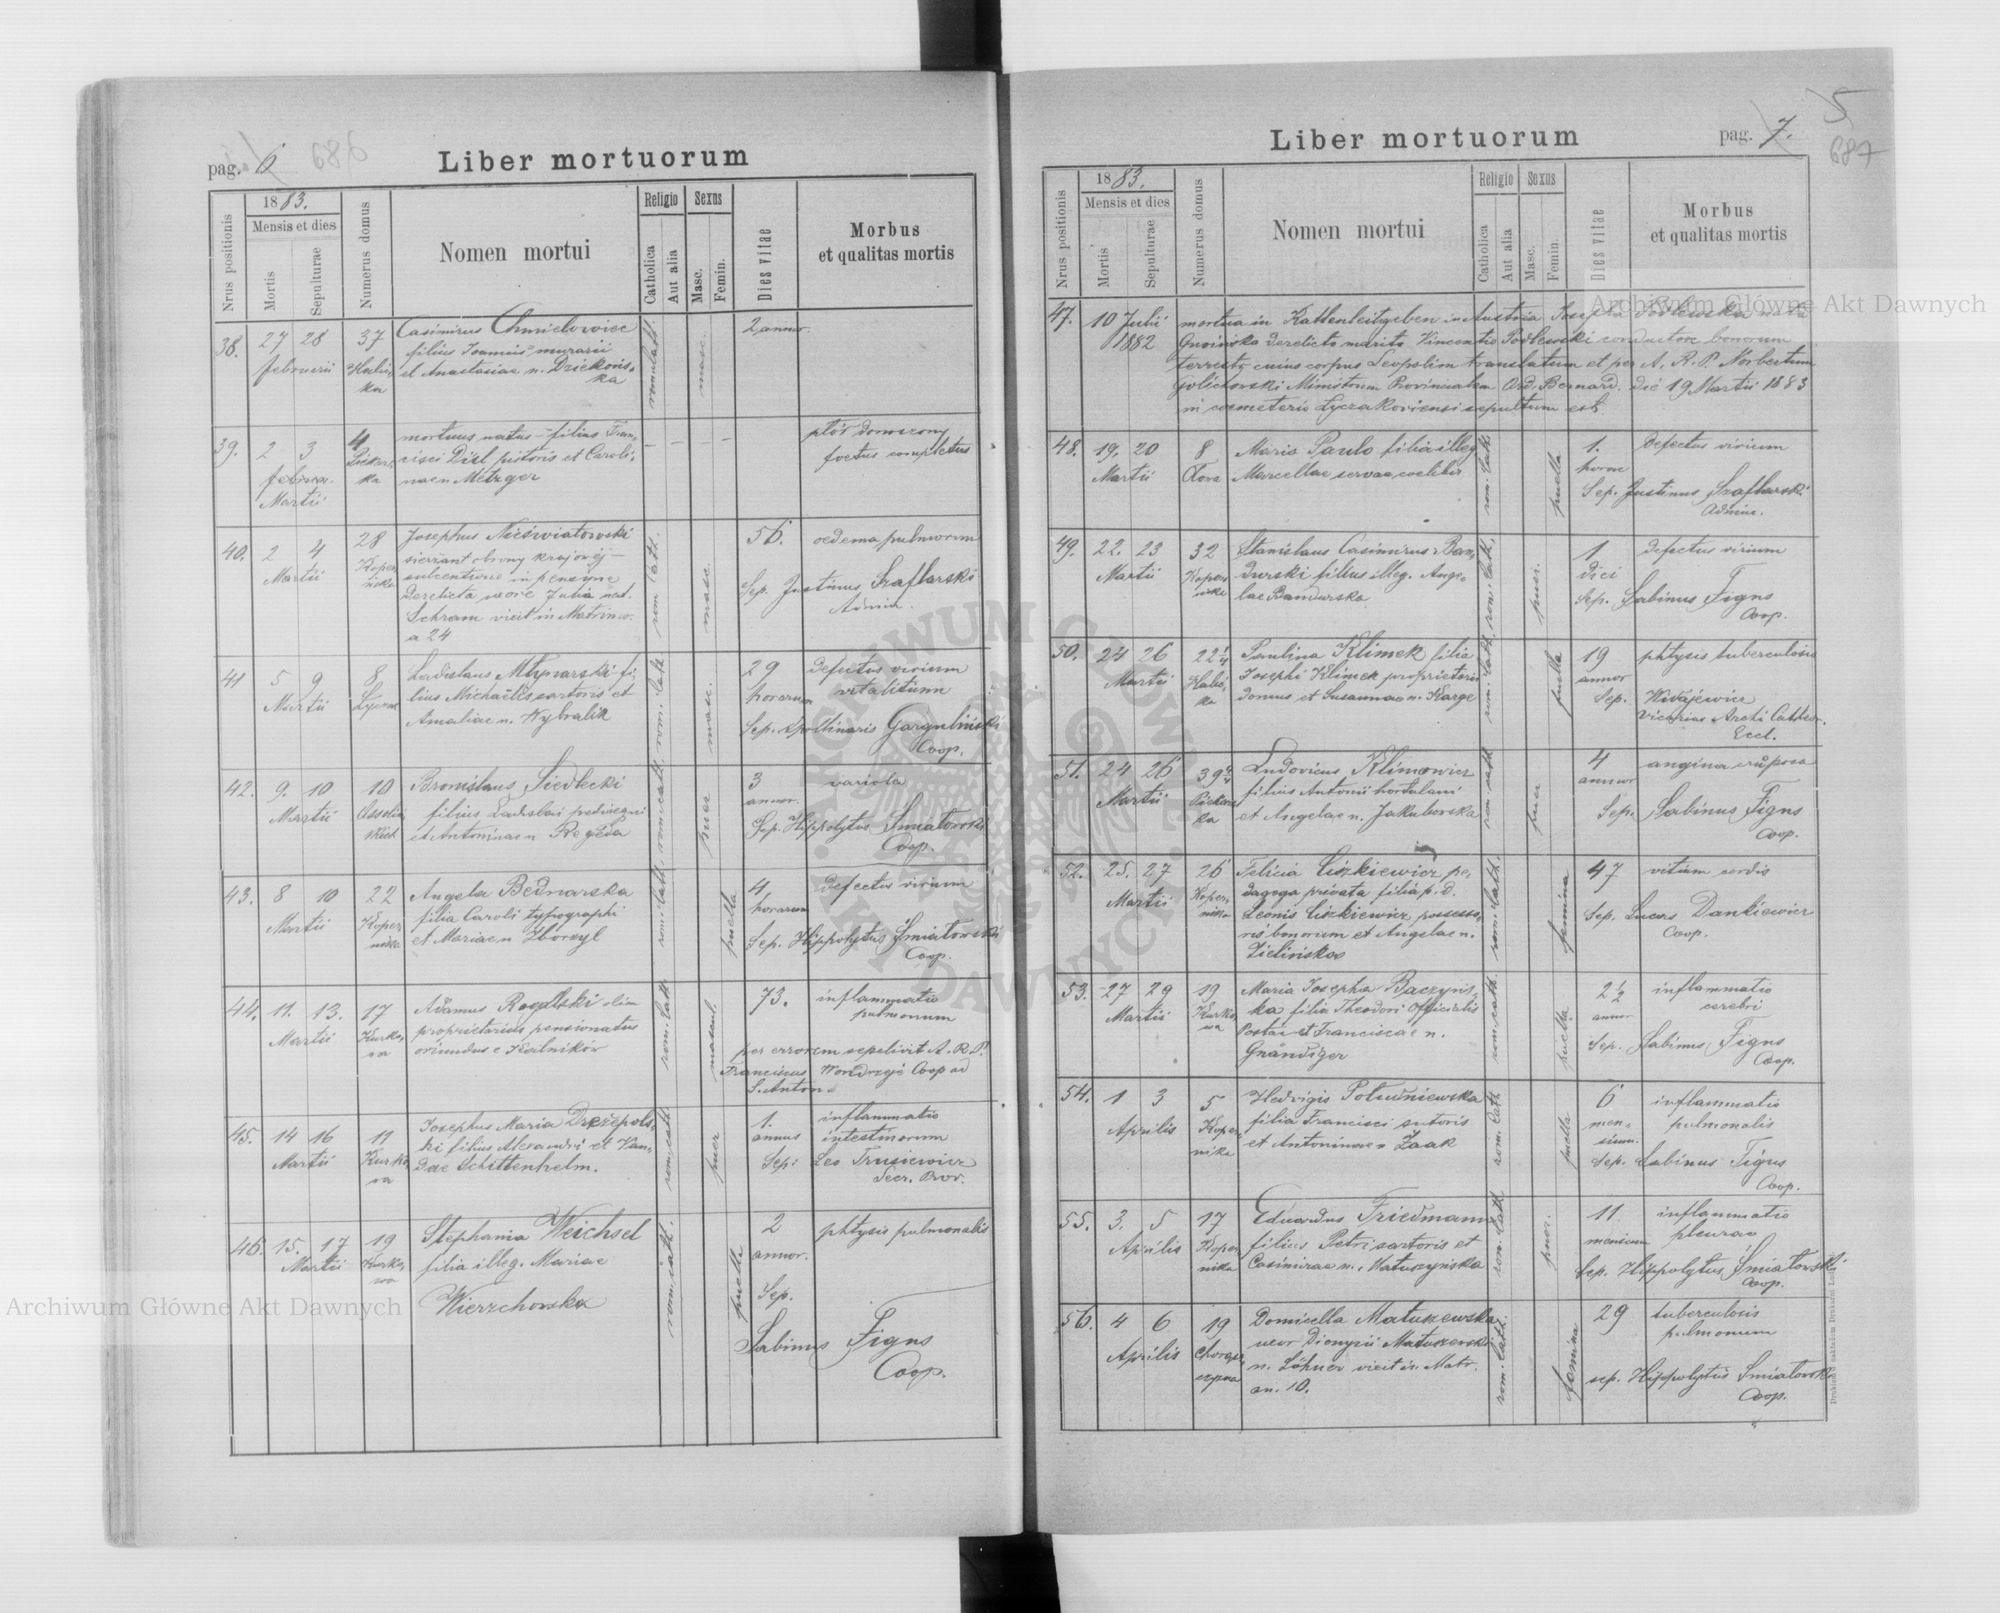 pag. 6 686
Liber mortuorum
Nrus positionis
1883.
Mensis et dies
Mortis
Sepulturae
Numerus domus
Nomen mortui
Religio
Catholica
Aut alia
Sexus
Masc.
Femin.
Dies vitae
Morbus
et qualitas mortis
38. 27 28 37 Casimirus Chmielowiec 2 annor.
februarii filius Joannis murarii
et Anastasiae n. Dzickońs-
ka
rom. cath. masc.
39. 2 3 4 mortuus natus – filius Fran-
cisci Dizl pistoris et Caroli-
nae n Metzger
Martii
płód donoszony
foetus completus
40. 2 4 28 Josephus Nieświatowski 56. oedema pulmorum
Martii Koper-
nika
sierżant obrony krajowéj –
in pensyne
derelicta uxore Julia nat.
Schram vixit in Matrimo.
a 24
rom. cath. masc.
Sep. Justinus Szaflarski
Admin.
41 5 9 8 Ladislaus Młynarski fi-
Martii lius Michaelis sartoris et
Amaliae n. Wybralik
rom. cath. masc.
29 defectus virium
horarum vitalitium
Sep. Apollinaris Garguliński
Coop.
42. 9. 10 10 Bronislaus Siedlecki
Martii filius Ladislai pedissequi
et Antoninae n Regięda
rom. cath. puer
3 variola
annor.
Sep. Hippolytus Śmiatowski
Coop.
43. 8 10 22 Angela Bednarska
Martii Koper-
nika
filia Caroli typographi
et Mariae n Zborzyl
rom. cath. puella
4 defectus virium
horarum
Sep. Hippolytus Śmiatowski
Coop.
44. 11. 13. 17 Adamus Rogalski olim
Martii Kurko-
wa
proprietarius pensionatus
oriundus e Kalników
rom. cath. mascul.
73. inflammatio
pulmonum
per errorem sepelivit A. R. D.
Franciscus Coop ad
S. Anton.
45. 14 16 11 Josephus Maria Drzepols-
Martii Kurko
wa
ki filius Alexandri et Van-
dae Schittenhelm.
rom. cath. puer
1. inflammatio
annus intestinorum
Sep: Leo Trusiewicz
Secr. Prov.
46. 15. 17 19 Stephania Weichsel
Martii Kurko-
wa
filia illeg. Mariae
Wierzchowska
rom. cath. puella
2 phtysis pulmonalis
annor.
Sep.
Sabinus Figus
Coop.
Liber mortuorum
pag. 7. 5 687
Nrus positionis
1883.
Mensis et dies
Mortis
Sepulturae
Numerus domus
Nomen mortui
Religio
Catholica
Aut alia
Sexus
Masc.
Femin.
Dies vitae
Morbus
et qualitas mortis
47. 10 Julii mortua in Kaltenleitgeben in Austria Josepha Podlewska nata
1882 Gnoińska derelicto marito Vincentio Podlewski conductore bonorum
terrestr. cuius corpus Leopolim translatum et per A. R. P. Norbertum
Golichowski Ministrum Provincialem Ord. Bernard. die 19 Martii 1883
in coemeterio Łyczakoviensi sepultum est.
48. 19. 20 8 Maria Paulo filia illeg.
Martii Marcellae servae coelibis
rom. cath. puella
1. defectus virium
horae
Sep. Justinus Szaflarski
Admin.
49. 22. 23 32 Stanislaus Casimirus Ban-
Martii Koper-
nika
durski filius illeg. Ange-
lae Bandurska
rom. cath. puer.
1 defectus virium
diei
Sep. Sabinus Figus
Coop.
50. 24 26 22¼ Paulina Klimek filia
Martii Halic-
ka
Josephi Klimek proprietarii
domus et Susannae n. Karge
rom. cath. puella
19 phtysis tuberculosis
annor
Sep.
Vicarius Archi Cathedr.
Eccl.
51. 24 26 39¾ Ludovicus Klimowicz
Martii Piekars
ka
filius Antonii hortulani
et Angelae n. Jakubowska
rom. cath. puer
4 angina cruposa
annor
Sep. Sabinus Figus
Coop.
52. 25. 27 26 Felicia Liszkiewicz pe-
Martii Koper-
nika
dagoga privata filia p. d.
Leonis Liszkiewicz possesso-
ris bonorum et Angelae n.
Zielińskos
rom. cath. femina
47 vitium cordis
Sep. Lucas Dankiewicz
Coop.
53. 27 29 19 Maria Josepha Baczyńs-
Martii Kurko-
wa
ka filia Theodori Officialis
Postae et Franciscae n.
Gnändiger
rom. cath. puella
2½ inflammatio
annor cerebri
Sep. Sabinus Figus
Coop.
54. 1 3 5 Hedvigis Południewska
Aprilis Koper-
nika
filia Francisci sutoris
et Antoninae n Zaak
rom. cath. puella
6 inflammatio
men-
sium. pulmonalis
Sep. Sabinus Figus
Coop.
55. 3. 5 17 Eduardus Friedmann
Aprilis Koper-
nika
filius Petri sartoris et
Casimirae n. Matuszyńska
rom. cath. puer.
11 inflammatio
mensium pleurae
Sep. Hippolytus Śmiatowski
Coop.
56. 4 6 19 Domicella Matuszewska
Aprilis Chorąż-
czyzna
uxor Dionysii Matuszewski
n. Löhner vixit in Matr.
an. 10.
rom. cath. femina
29 tuberculosis
pulmonum
sep. Hippolytus Śmiatowski
Coop.
Archiwum Główne Akt Dawnych
Archiwum Główne Akt Dawnych
ARCHIWUM GŁÓWNE AKT DAWNYCH